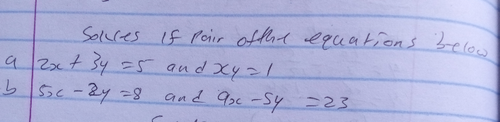 Solves if pair of the equations below
a 2x + 3y = 5 and xy = 1
b 5x - 2y = 8 and 9x - 5y = 23